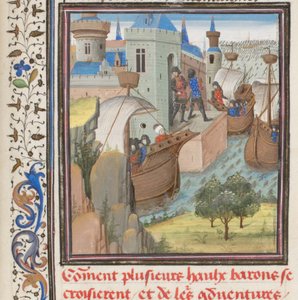 Comment plusieurs haulx barons se
croisierent / et de leˢ aduentures